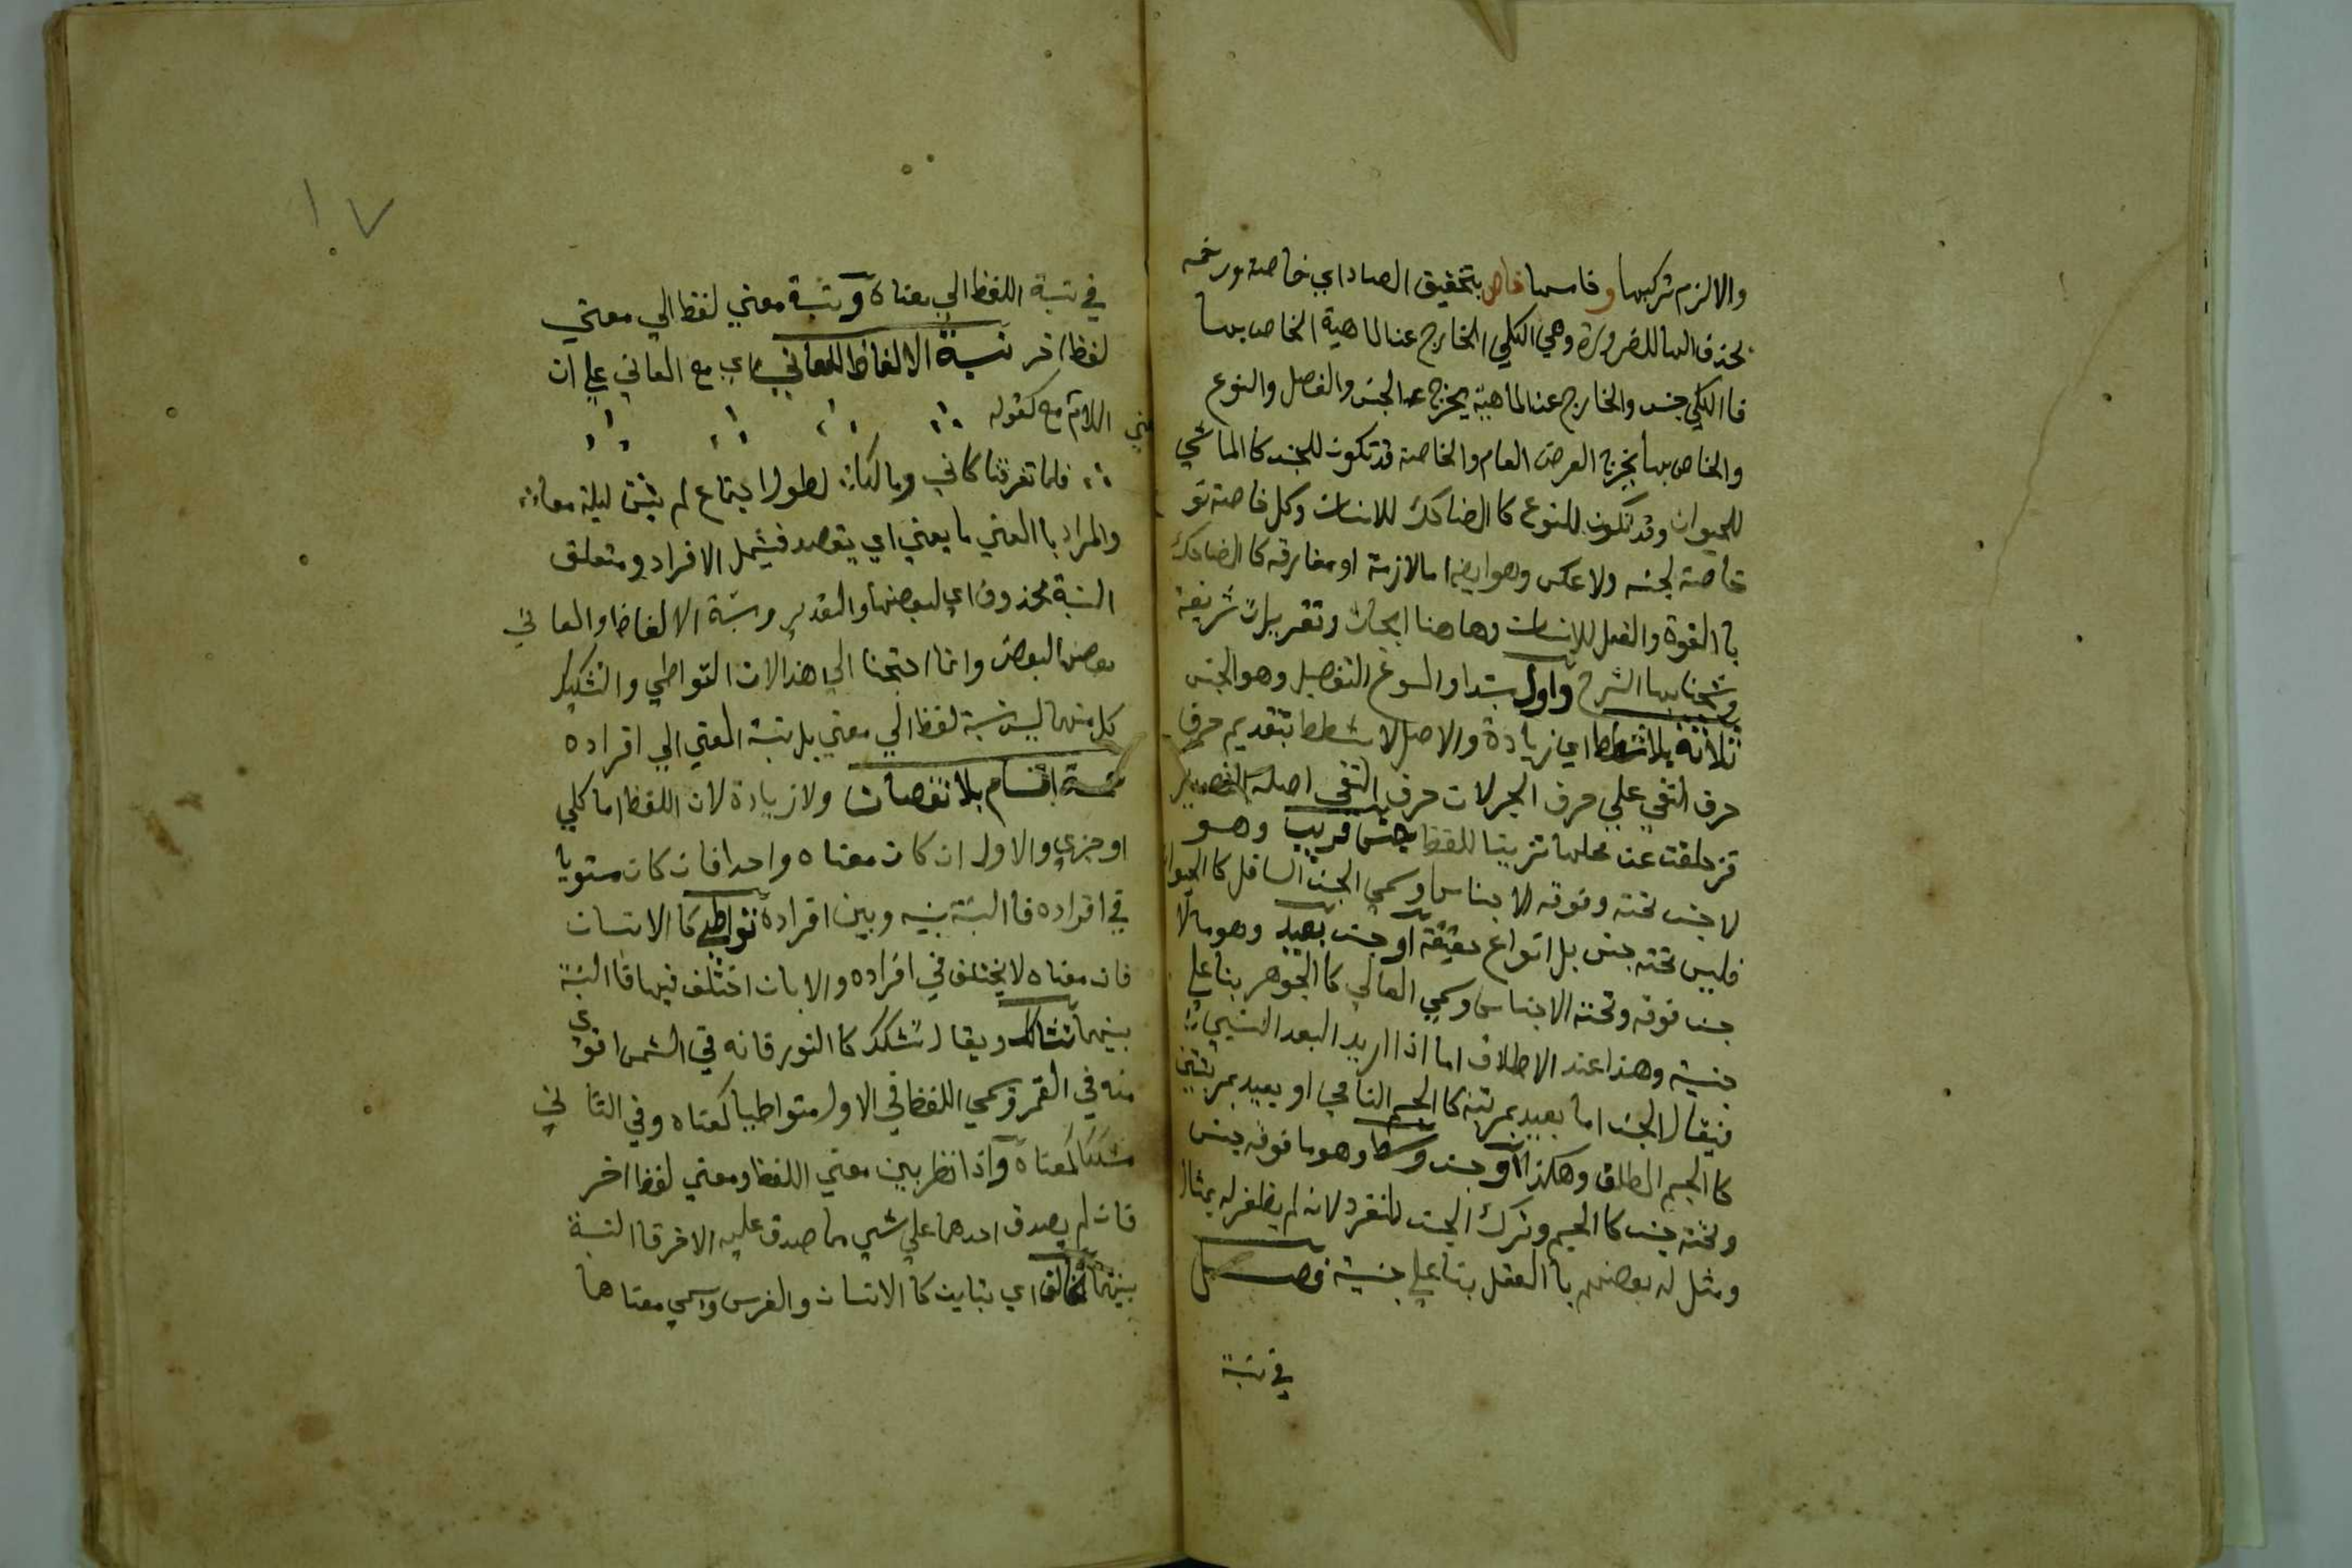 والالزم تركبها وخامسها خاص بتخفيف الصاد اي خاصة ورخمه
بحذف الها للضرورة وهي الكلي الخارج عن الماهية الخاص بها
فاالكلي جنس والخارج عن الماهية يخرج به الجنس والفصل والنوع
والخاص بها يخرج العرض العام والخاصة قد تكون للجنس كالماشي
للحيوان وقد تكون للنوع كا الضاحك للانسان وكل خاصة نو
خاصة لجنسه ولا عكس وهو ايضا اما لازمة او مفارقه كا الضاحك
با القوة والفعل للانسان وها هنا ابحاث وتقريرات شريفة
وشحنا بها الشرح واول مبتدا والمسوغ التفصيل وهو الجنس
ثلاثة بلا شطط اي زيادة والاصل لا بشطط بتقديم حرف
حرف النفي علي حرف الجر لان حرف النفي اصله التصدير
فزحلقت عن محلها تزيينا للفظ جنس قريب وهو
لا جنس تحته وفوقه الاجناس وسمي الجنس السافل كا الحيوا
فليس تحته جنس بل انواع حقيقة او جنس بعيد وهو مالا
جنس فوقه وتحته الاجناس وسمي العالي كا الجوهر بنا علي
جنسيته وهذا عند الاطلاق اما اذا اريد البعد النسبي
فيقال الجنس اما بعيد بمرتبة كا الجسم النامي او بعيد بمرتبتين
كا الجسم المطلق وهكذا او جنس وسط وهو ما فوقه جنس
وتحته جنس كا الجسم وترك الجنس المنفرد لانه لم يظفر له بمثال
ومثل له بعضهم با العقل بنا علي جنسيته فصل
في نسبة
١٠٧
في نسبة اللفظ الي معناه ونسبة معني لفظ الي معني
لفظ اخر نسبة الالفاظ للمعاني اي مع المعاني علي ان
اللام مع كقوله
فلما تفرقنا كاني ومالكا لطول اجتماع لم نبت ليلة معا
والمراد با المعني ما يعني اي يقصد فيشمل الافراد ومتعلق
النسبة محذوف اي لبعضها والتقدير ونسبة الالفاظ والمعاني
بعض البعض وانما احتجنا الي هذا لان التواطي والتشكيك
كل منهما ليس نسبة لفظ الي معني بل نسبة المعني الي افراده
خمسة اقسام بلا نقصان ولا زيادة لان اللفظ اما كلي
او جزي والاول ان كان معناه واحدا فان كان مستويا
في افراده فا النسبة بينه وبين افراده تواطي كا الانسان
فان معناه لا يختلف في افراده والا بان اختلف فيها فا النسبة
بينهما تشاكك ويقال تشكك كا النور فانه في الشمس اقوي
منه في القمر وسمي اللفظ في الاول متواطيا كمعناه وفي الثاني
مشككا كمعناه واذا نظر بين معني اللفظ ومعني لفظ اخر
فان لم يصدق احدهما علي شي مما صدق عليه الاخر فا النسبة
بينهما تخالف اي تباين كا الانسان والفرس واسمي معناهما